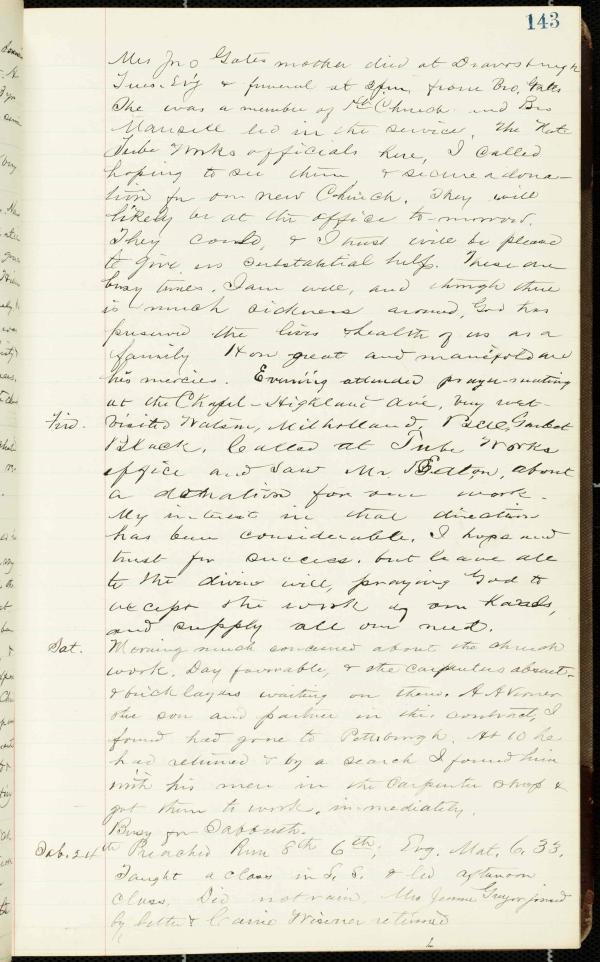 143
Mrs Jno Gates mother died at Dravosburgh
Tues. Ev'g & funeral at 2 p.m. from Bro. Gates
She was a member of Church and Bro
led in the service. The Nat.
Tube Works officials here, I called
hoping to see them, & secure a dona-
tion for our new Church. They will
likely be at the office to-morrow.
They could, & I trust will be pleased
to give us substantial help. These are
busy times. I am well, and though there
is much sickness around, God has
preserved the lives & health of us as a
family. How great and manifold are
his mercies. Evening attended prayer-meeting
at the Chapel - Highland Ave, very wet -
Frid. visited Watson, Milholland, Bell,
Black. Called at Tube Works
office and saw Mr. about
a donation for our work.
My interest in that direction
has been considerable. I hope and
trust for success, but leave all
to the divine will, praying God to
accept the work of our hands,
and supply all our need.
Sat. Morning much concerned about the church
work. Day favorable, & the carpenters absent -
& brick layers waiting on them. A A
the son and partner in this contract, I
found had gone to Pittsburgh. At 10 he
had returned & by a search I found him
with his men in the carpenter shop &
got them to work, immediately.
Busy for Sabbath.
Sab. 24th Preached Rom 8th 6th; Evg. Mat. 6.33.
Taught a class in S. S. & led afternoon
class. Did not rain. Mrs Jennie joined
by letter & Carrie returned